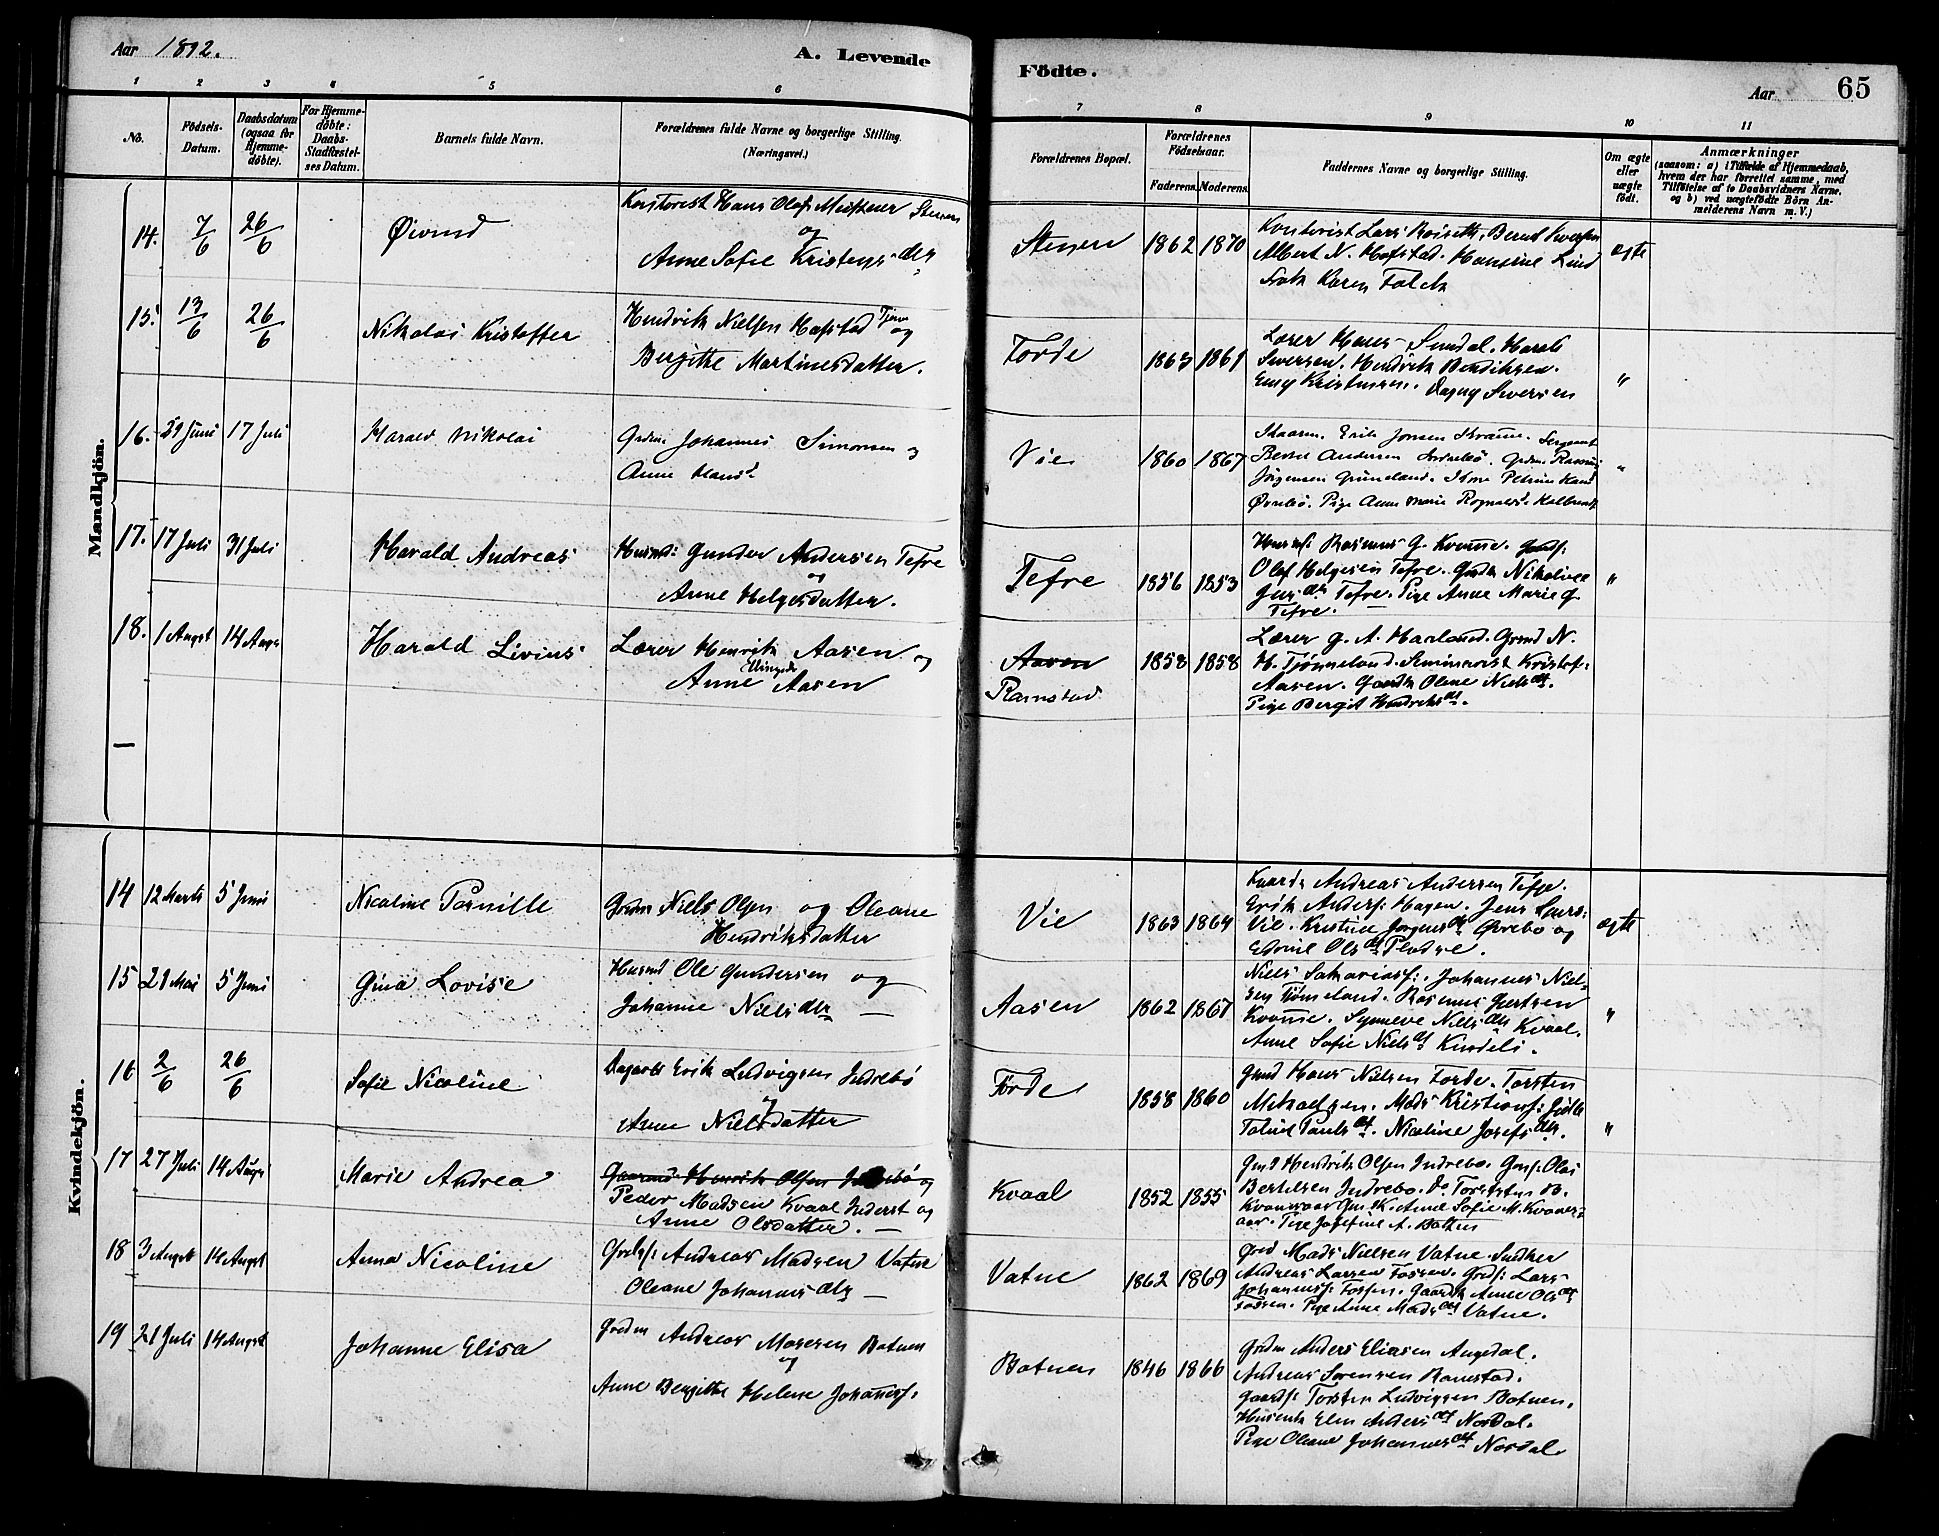 Aar 1892.
A. Levende
Födte.
Aar
65
1 2 3 4 5 6 7 8 9 10 11
No.
Födsels-Datum.
Daabsdatum (ogsaa for Hjemme-döbte).
For Hjemme-döbte: Daabs-Stadfæstelses Datum.
Barnets fulde Navn.
Forældrenes fulde Navne og borgerlige Stilling.
(Næringsvei.)
Forældrenes Bopæl.
Forældrenes Födselsaar.
Faderens. Moderens.
Faddernes Navne og borgerlige Stilling.
Om ægte eller uægte födt.
Anmærkninger
(saasom: a) i Tilfælde af Hjemmedaab,
hvem der har forrettet samme, med
Tilföielse af to Daabsvidners Navne,
og b) ved uægtefödte Börn An-
melderens Navn m. V.)
Mandkjön.
14. 7/6 26/6 Øivind
Hans Olaf Stenen
og
Anne Sofie Kristens dtr
Stenen 1862 1870
Kontorist Lars Bernt Iversen
Albert N. Hofstad. Hansine Lind
Karen Falck
ægte
15. 13/6 26/6 Nikolai Kristoffer
Hendrik Nielsen Hafstad og
Bergitte Martinusdatter.
Førde 1863 1861
Lærer Hans Sundal.
Iversen. Hendrik Bendiksen.
Kristensen. Dagny Iversen
"
16. 29 Juni 17 Juli Harald Nikolai
Grdm. Johannes Simonsen og
Anne Hansd.
Vie 1860 1867
Erik Jonsen Kvamme. Sergeant
Andersen Indrebö. Grdm. Rasmus
Jörgensen Grimeland. Petrine Hans
Øvrebö. Pige Anne Marie Rognalds.
"
17. 17 Juli 31 Juli Harald Andreas
Husmd: Gunder Andersen Tefre
og
Anne Helgesdatter.
Tefre 1856 1853
Husmf: Rasmus G. Kvamme.
Olaf Helgesen Tefre. Nikoline
Tefre. Pige Anne Marie G.
Tefre.
"
18. 1 Augst 14 Augs Harald Livius
Lærer Henrik Aasen og
Anne Ellingsdr Aasen
Aasen
Ramstad 1858 1858
Lærer G. A. Havland. Grmd N.
H. Tjønneland. Seminarist Kristof:
Aasen. Oline Nielsdt.
Pige Bergit Hendriksdt.
Kvindekjön.
14 12 Marts 5 Juni Nicoline Pernille
Grdm Niels Olsen og Oleane
Hendriksdatter
Vie 1863 1864
Andreas Andersen Tefre.
Erik Anders: Hagen. Jens Lars:
Vie. Kristine Jørgensdt Øvrebø og
Olsdt Flodre.
ægte
15 21 Mai 5 Juni Gina Lovise
Husmd Ole Gundersen og
Johanne Niels dtr —
Aasen 1862 1867
Niels Sakariasf:. Johannes Niel-
sen Tjønneland. Rasmus Gjertsen
Kvamme. Synneve Nielsdtr Kvaal.
Anne Sofie Nielsdt
"
16 2/6 26/6 Sofie Nicoline
Erik Ludvigsen Indrebø
og
Anne Nielsdatter
Førde 1858 1860
Hans Nielsen Førde. Torsten
Mikaelsen. Mads Kristiansf:
Paulsdt. Nicoline Josefsdtr.
"
17 27 Juli 14 Augs Marie Andrea
Gaarmd Henrik Olsen Indrebö og
Peder Madsen Kvaal Inderst og
Anne Olsdatter. —
Kvaal 1852 1855
Hendrik Olsen Indrebø. Olai
Bertelsen Indrebø. Do Torsten
Anne Sofie M.
Pige Josefine A. Botten
18 3 Augst 14 Augst Anna Nicoline
Andreas Madsen Vatne
Oleane Johannesdtr —
Vatne 1862 1869
Mads Nielsen Vatne.
Andreas Larsen Fossen. Lars
Johannesf: Fossen. Anne Olsdt
Fossen. Pige Anne Madsdt Vatne.
19 21 Juli 14 Augst Johanne Elisa
Grdm Andreas Botnen
og
Anne Bergitte Helene Johannesf.
Botnen 1846 1866
Grdm Anders Eliasen Angedal.
Andreas Sørensen Ramstad.
Gaardf: Torsten Ludvigsen Botnen.
Elen Andersdt Nordal.
Pige Oleane Johannesdt Nordal